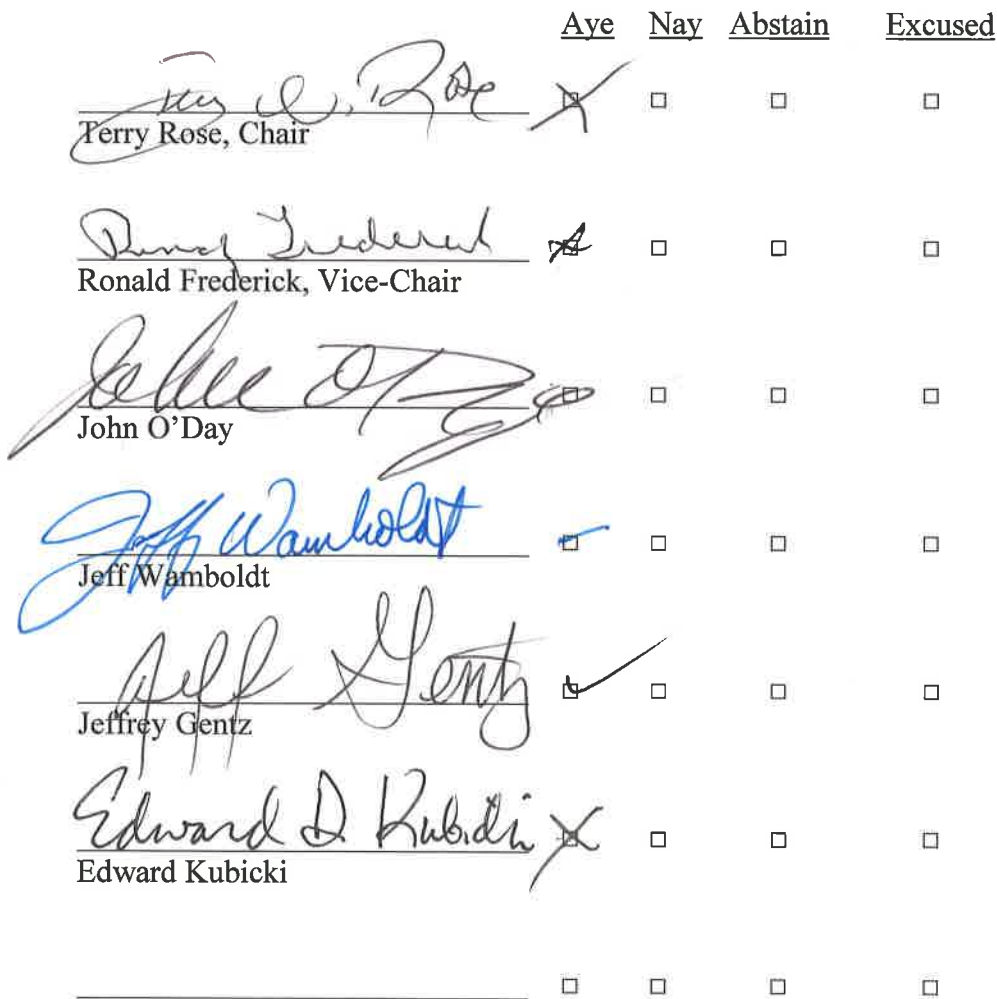 Aye Nay Abstain Excused
Terry Rose
Terry Rose, Chair
Frederick
Ronald Frederick, Vice-Chair
John O'Day
John O'Day
Jeff Wamboldt
Jeff Wamboldt
Jeff Gentz
Jeffrey Gentz
Edward D. Kubicki
Edward Kubicki